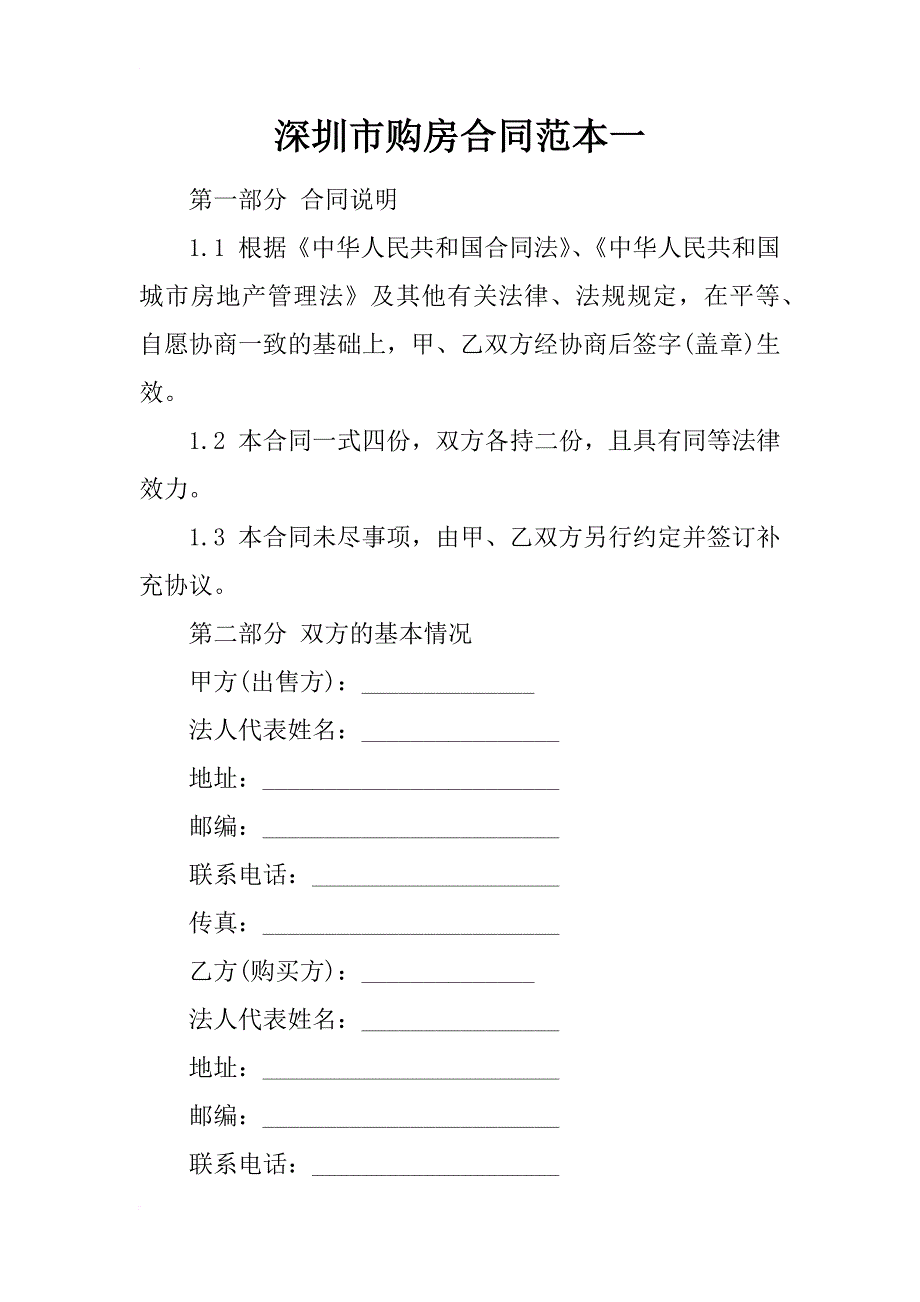 深圳市购房合同范本一
第一部分 合同说明
1.1 根据《中华人民共和国合同法》、《中华人民共和国
城市房地产管理法》及其他有关法律、法规规定，在平等、
自愿协商一致的基础上，甲、乙双方经协商后签字(盖章)生
效。
1.2 本合同一式四份，双方各持二份，且具有同等法律
效力。
1.3 本合同未尽事项，由甲、乙双方另行约定并签订补
充协议。
第二部分 双方的基本情况
甲方(出售方)：______________
法人代表姓名：________________
地址：________________________
邮编：________________________
联系电话：____________________
传真：________________________
乙方(购买方)：______________
法人代表姓名：________________
地址：________________________
邮编：________________________
联系电话：____________________